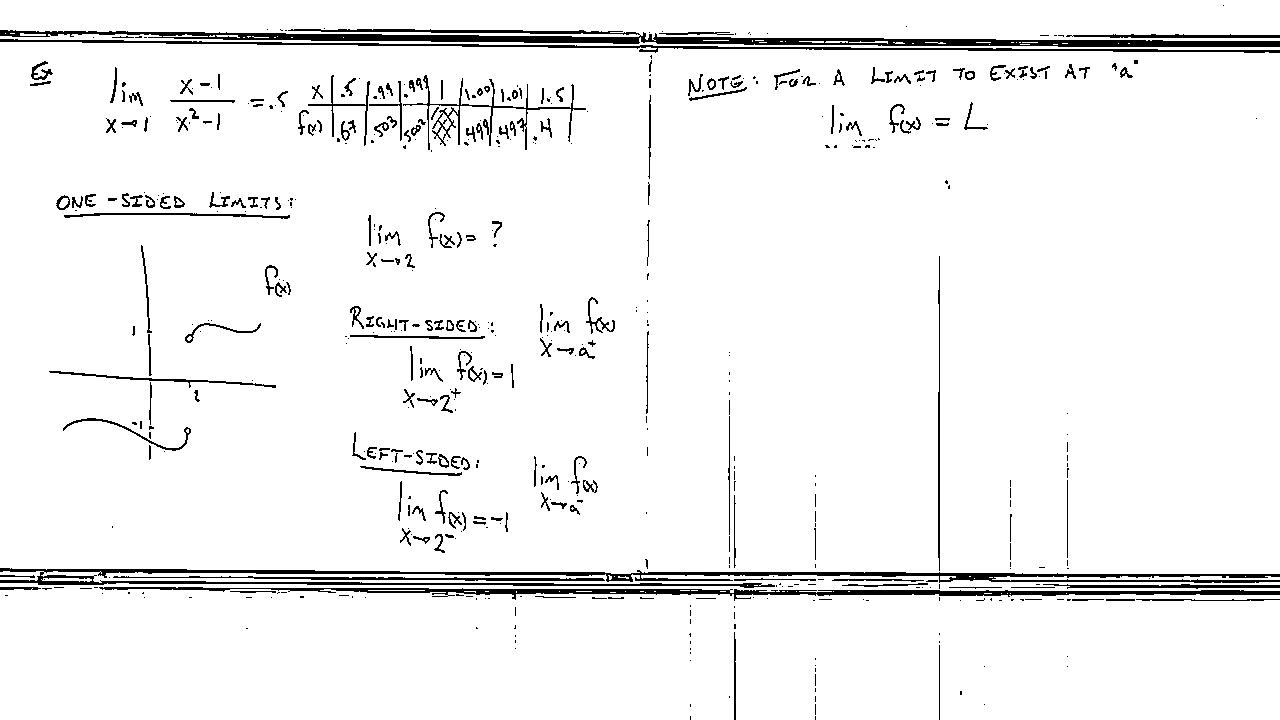 Ex lim x→1 (x-1)/(x²-1) = .5
x | .5 | .99 | .999 | 1 | 1.001 | 1.01 | 1.5
f(x) | .67 | .503 | .5002 | | .499 | .497 | .4
ONE-SIDED LIMITS:
f(x)
1
2
-1
lim x→2 f(x) = ?
RIGHT-SIDED: lim x→a⁺ f(x)
lim x→2⁺ f(x) = 1
LEFT-SIDED: lim x→a⁻ f(x)
lim x→2⁻ f(x) = -1
NOTE: FOR A LIMIT TO EXIST AT "a"
lim f(x) = L